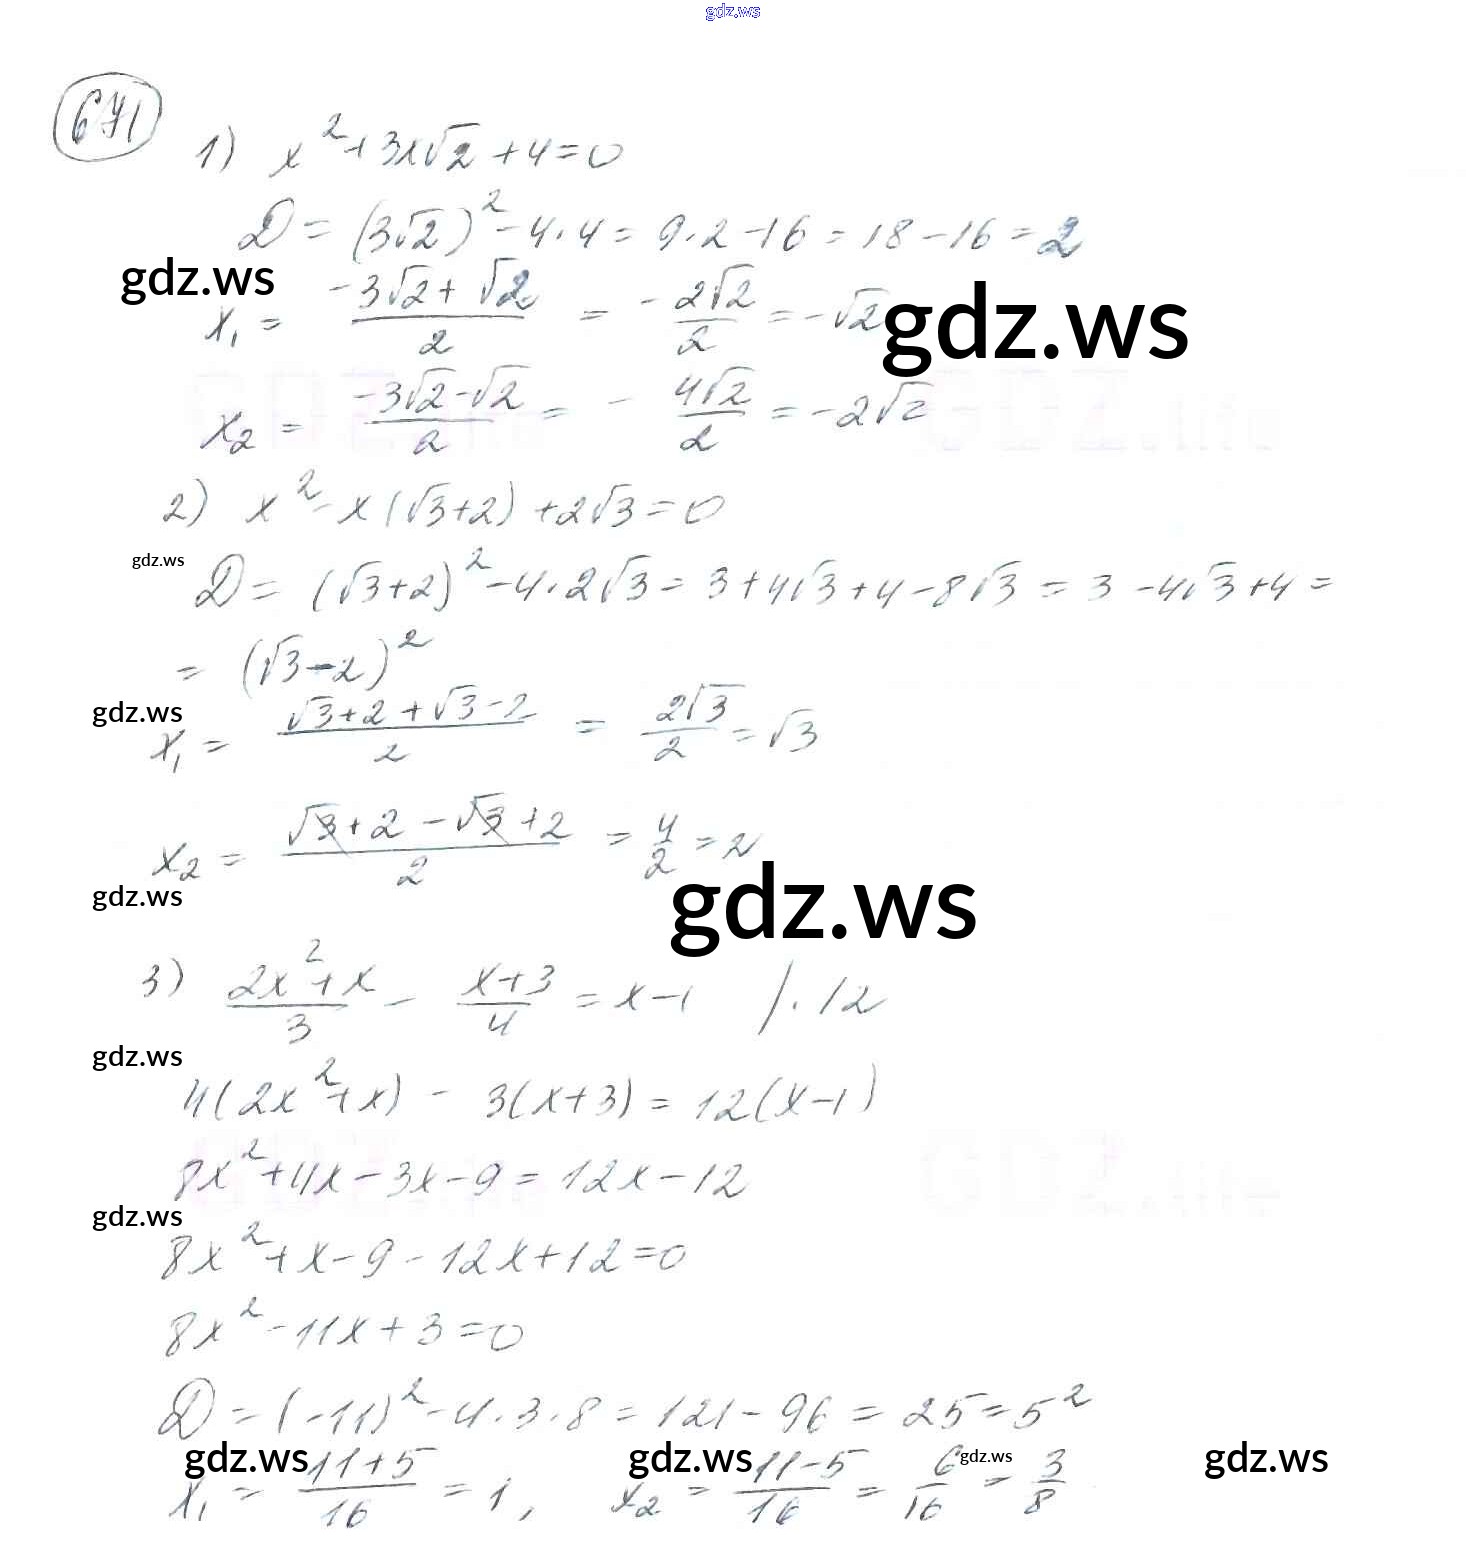 gdz.ws
671
1) x² + 3x√2 + 4 = 0
D = (3√2)² - 4·4 = 9·2 - 16 = 18 - 16 = 2
gdz.ws
x₁ = (-3√2 + √2)/2 = - 2√2/2 = -√2
gdz.ws
GDZ.life GDZ.life
x₂ = (-3√2 - √2)/2 = - 4√2/2 = -2√2
2) x² - x(√3+2) + 2√3 = 0
gdz.ws
D = (√3+2)² - 4·2√3 = 3 + 4√3 + 4 - 8√3 = 3 - 4√3 + 4 =
= (√3-2)²
gdz.ws
x₁ = (√3+2+√3-2)/2 = 2√3/2 = √3
x₂ = (√3+2-√3+2)/2 = 4/2 = 2
gdz.ws
gdz.ws
3) (2x²+x)/3 - (x+3)/4 = x-1 /·12
gdz.ws
4(2x²+x) - 3(x+3) = 12(x-1)
GDZ.life GDZ.life
8x²+4x-3x-9 = 12x-12
gdz.ws
8x²+x-9-12x+12=0
8x²-11x+3=0
D = (-11)² - 4·3·8 = 121 - 96 = 25 = 5²
gdz.ws gdz.ws gdz.ws gdz.ws
x₁ = (11+5)/16 = 1, x₂ = (11-5)/16 = 6/16 = 3/8